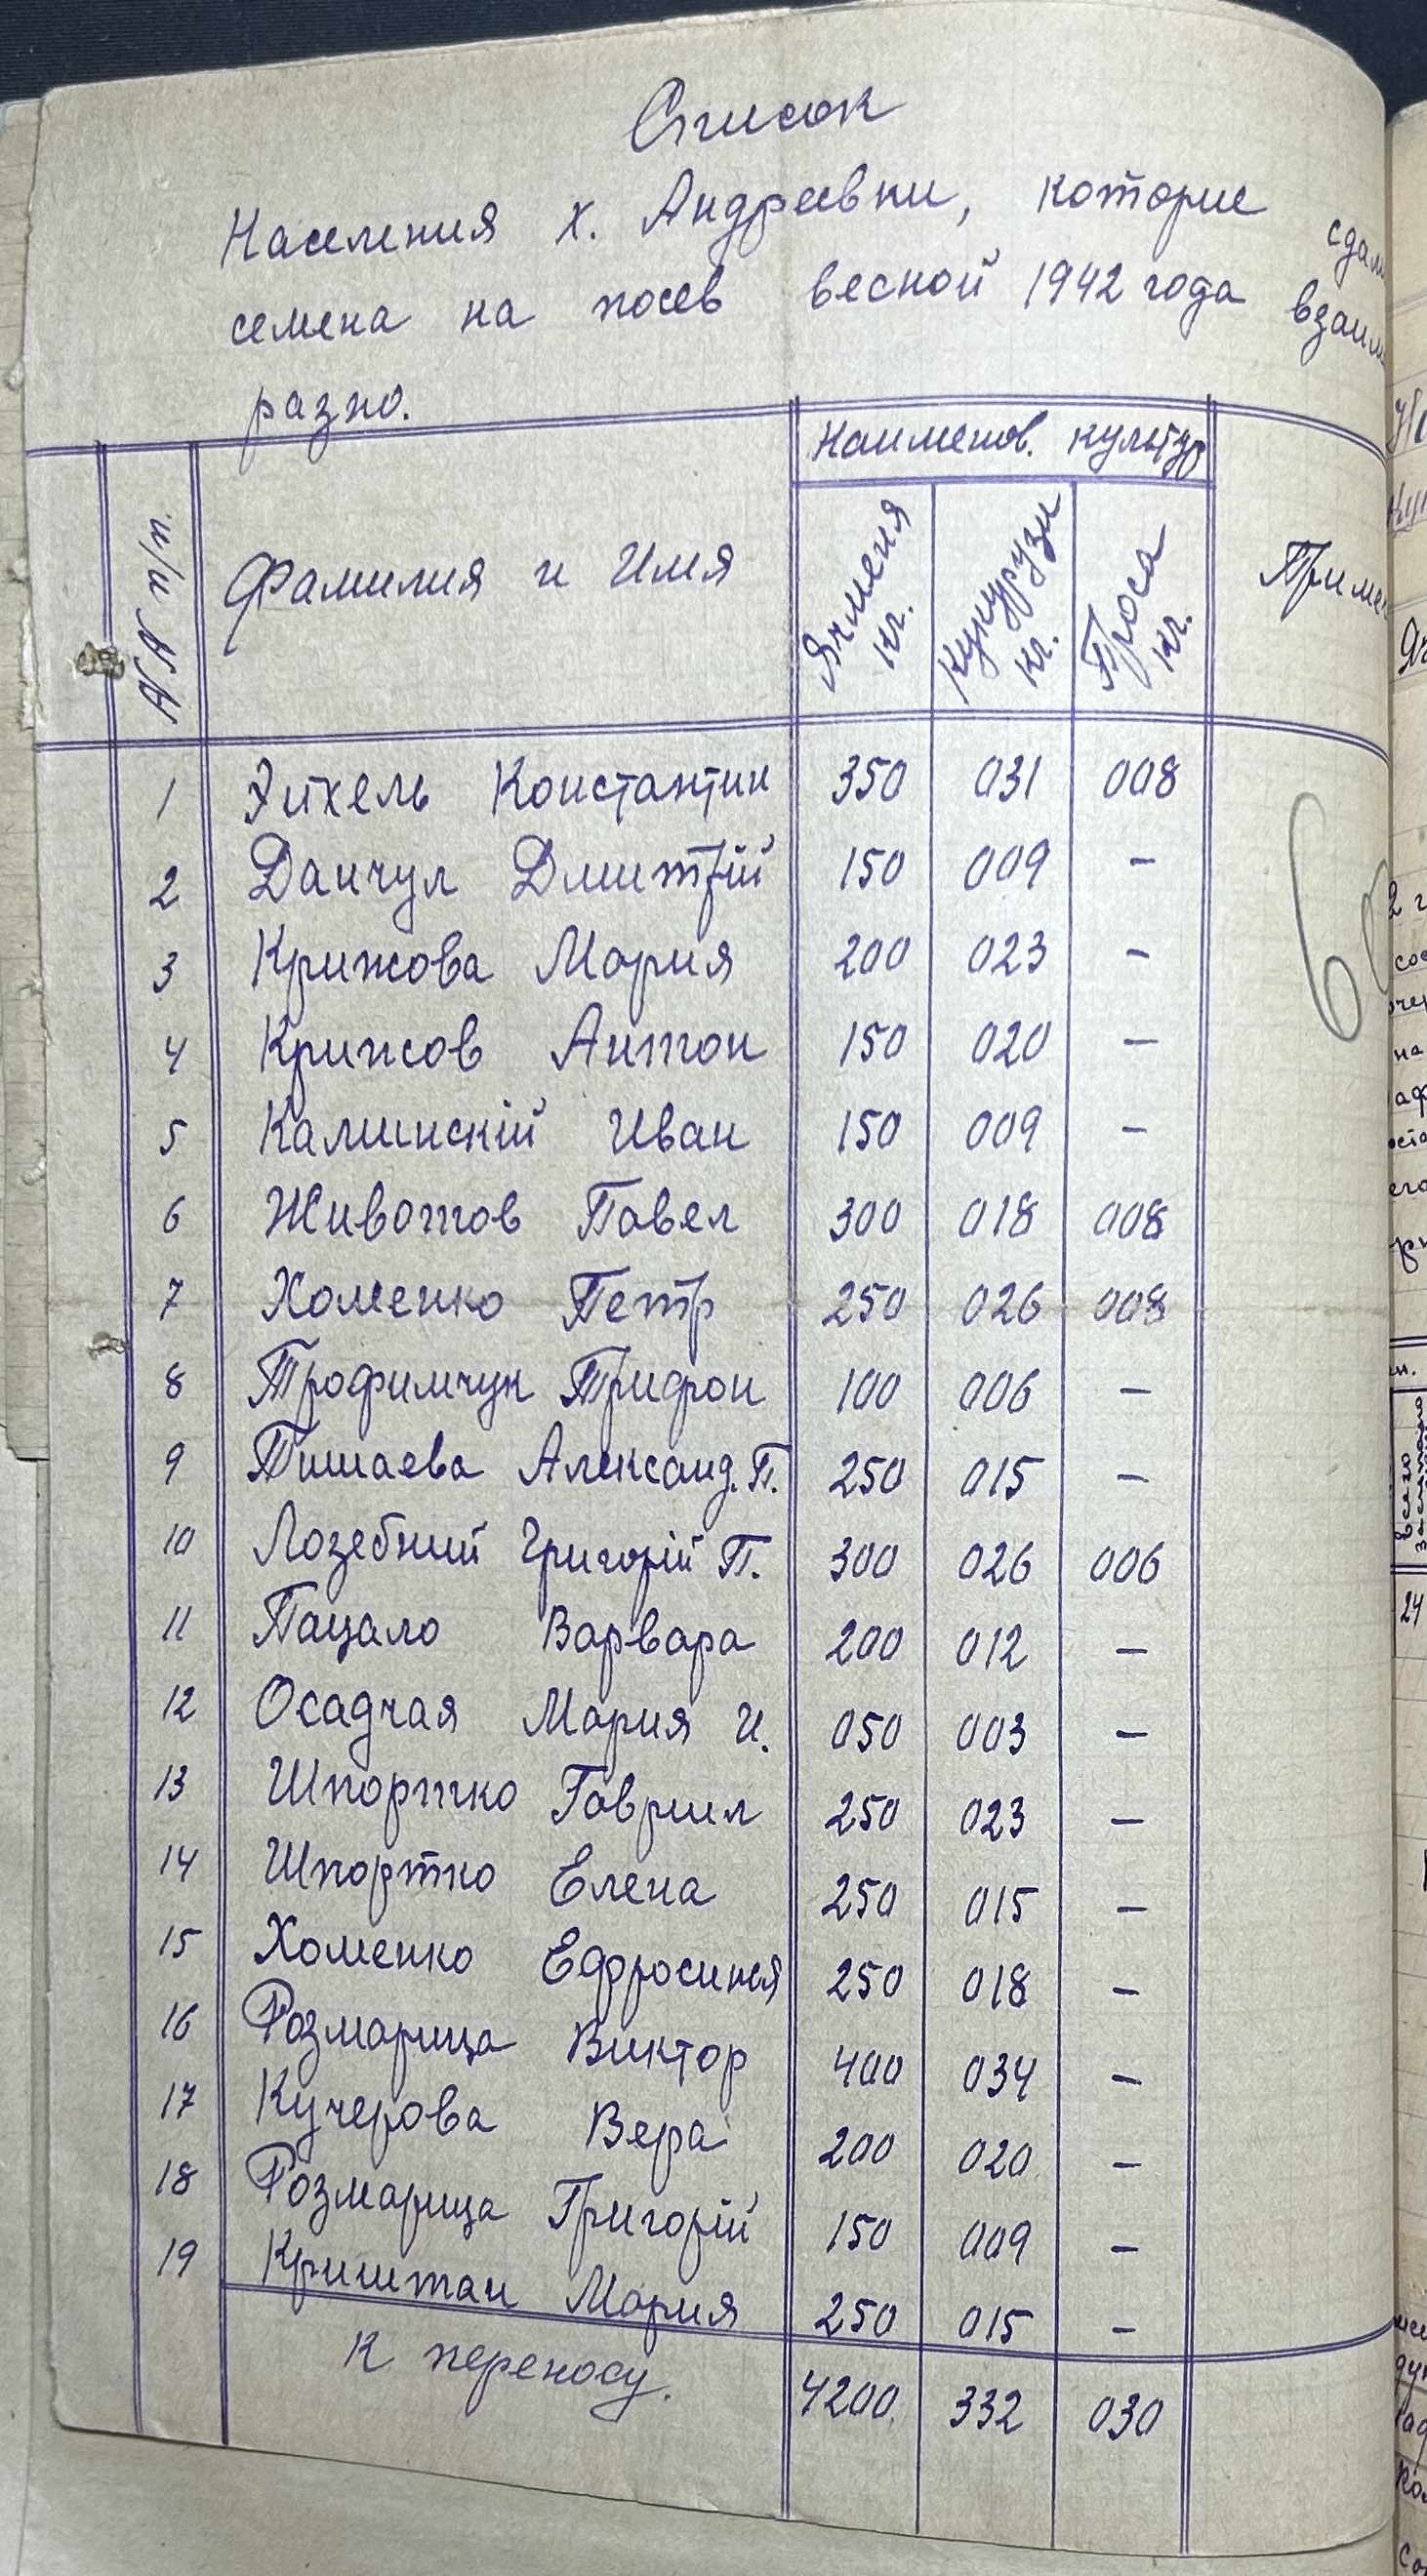 Список
Населения х. Андреевки, которие сдали
семена на посев весной 1942 года взаим
разно.
№№ п/п. Фамилия и Имя Наименов. культур
Ячменя кг. Кукурузи кг. Проса кг. Примеч
1 Эйхель Константин 350 031 008
2 Данчул Дмитрій 150 009 –
3 Крижова Мария 200 023 –
4 Крижов Антон 150 020 –
5 Калинскій Иван 150 009 –
6 Животов Павел 300 018 008
7 Хоменко Петр 250 026 008
8 Трофимчук Трифон 100 006 –
9 Тишаева Александ. П. 250 015 –
10 Лозебний Григорій П. 300 026 006
11 Пацало Варвара 200 012 –
12 Осадчая Мария И. 050 003 –
13 Шпортко Гавриил 250 023 –
14 Шпортко Елена 250 015 –
15 Хоменко Ефросиния 250 018 –
16 Розмарица Виктор 400 034 –
17 Кучерова Вера 200 020 –
18 Розмарица Григорій 150 009 –
19 Криштан Мария 250 015 –
К переносу. 4200 332 030